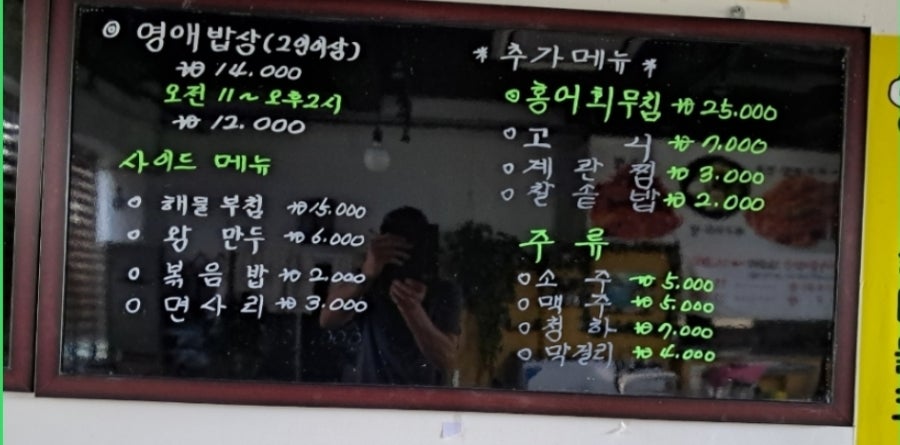 ◎ 영애밥상(2인이상)
₩ 14.000
오전 11~오후2시
₩ 12.000
사이드 메뉴
○ 해물부침 ₩15.000
○ 왕만두 ₩6.000
○ 볶음밥 ₩2.000
○ 면사리 ₩3.000
* 추가메뉴 *
◎ 홍어회무침 ₩25.000
○ ₩7.000
○ 계란찜 ₩3.000
○ 찰솥밥 ₩2.000
주류
○ 소주 ₩5.000
○ 맥주 ₩5.000
○ 청하 ₩7.000
○ 막걸리 ₩4.000